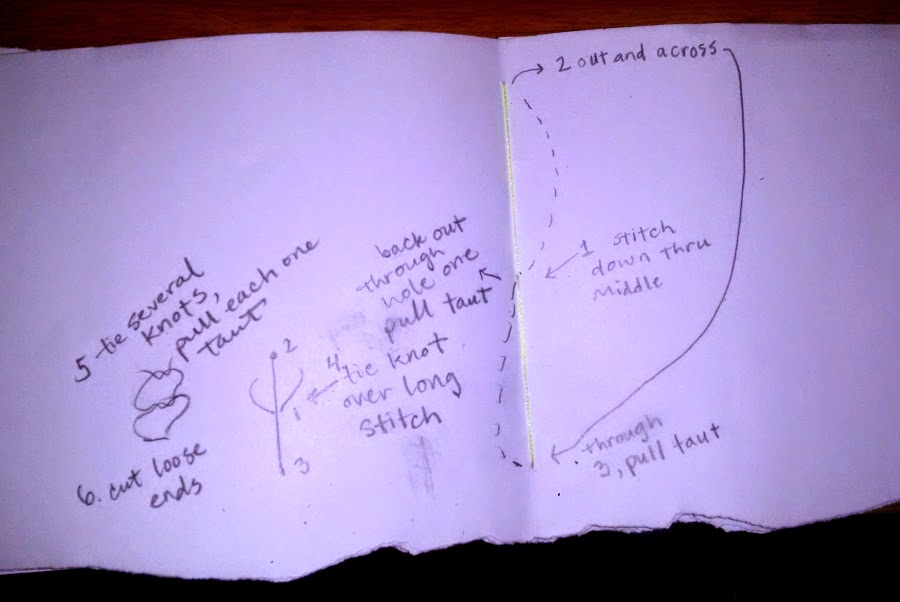 2 out and across
1 stitch
down thru
Middle
through
3, pull taut
back out
through
hole one
pull taut
4.
tie knot
over long
stitch
2
1
3
5 tie several
knots,
pull each one
taut
6. cut loose
ends